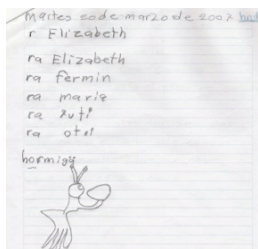 martes 20 de marzo de 2007
r Elizabeth
ra Elizabeth
ra fermin
ra maria
ra xuti
ra otol
hormiga